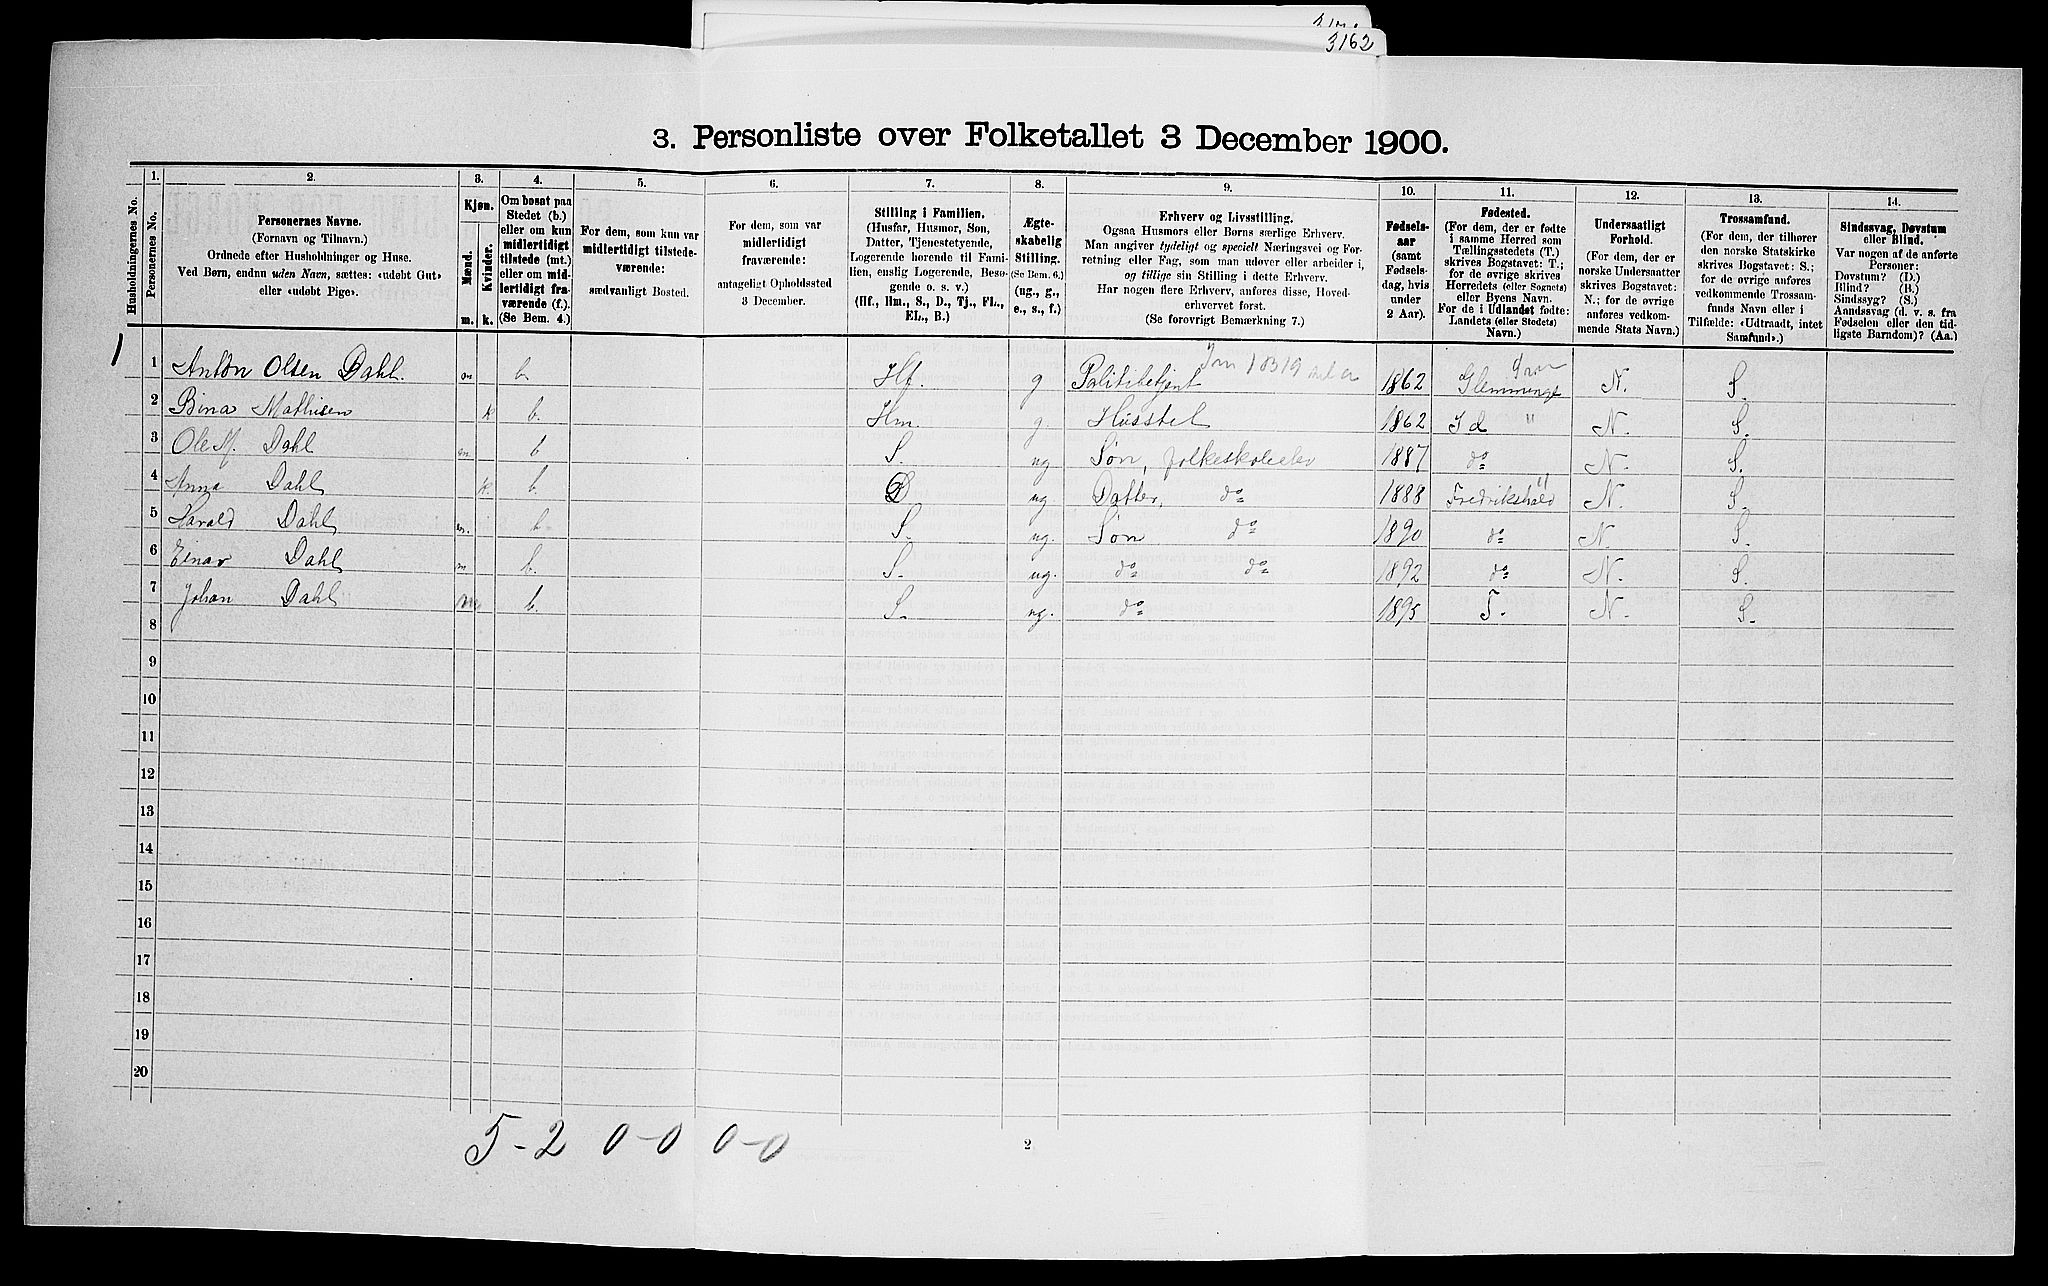 3162
3. Personliste over Folketallet 3 December 1900.
Husholdningernes No.
1.
Personernes No.
2.
Personernes Navne.
(Fornavn og Tilnavn.)
Ordnede efter Husholdninger og Huse.
Ved Børn, endnu uden Navn, sættes: «udøbt Gut»
eller «udøbt Pige».
3.
Kjøn.
Mænd.
Kvinder.
m.
k.
4.
Om bosat paa
Stedet (b.)
eller om kun
midlertidigt
tilstede (mt.)
eller om mid-
lertidigt fra-
værende (f.).
(Se Bem. 4.)
5.
For dem, som kun var
midlertidigt tilstede-
værende:
sædvanligt Bosted.
6.
For dem, som var
midlertidigt
fraværende:
antageligt Opholdssted
3 December.
7.
Stilling i Familien.
(Husfar, Husmor, Søn,
Datter, Tjenestetyende,
Logerende hørende til Fami-
lien, enslig Logerende, Besø-
gende o. s. v.)
(Hf., Hm., S., D., Tj., FL.,
EL., B.)
8.
Ægte-
skabelig
Stilling.
(Se Bem. 6.)
(ug., g.,
e., s., f.)
9.
Erhverv og Livsstilling.
Ogsaa Husmors eller Børns særlige Erhverv.
Man angiver tydeligt og specielt Næringsvei og For-
retning eller Fag, som man udøver eller arbeider i,
og tillige sin Stilling i dette Erhverv.
Har nogen flere Erhverv, anføres disse, Hoved-
erhvervet først.
(Se forøvrigt Bemærkning 7.)
10.
Fødsels-
aar
(samt
Fødsels-
dag, hvis
under
2 Aar).
11.
Fødested.
(For dem, der er fødte
i samme Herred som
Tællingsstedets (T.)
skrives Bogstavet: T.;
for de øvrige skrives
Herredets (eller Sognets)
eller Byens Navn.
For de i Udlandet fødte:
Landets (eller Stedets)
Navn.)
12.
Undersaatligt
Forhold.
(For dem, der er
norske Undersaatter
skrives Bogstavet:
N.; for de øvrige
anføres vedkom-
mende Stats Navn.)
13.
Trossamfund.
(For dem, der tilhører
den norske Statskirke
skrives Bogstavet: S.;
for de øvrige anføres
vedkommende Trossam-
funds Navn eller i
Tilfælde: «Udtraadt, intet
Samfund».)
14.
Sindssvag, Døvstum
eller Blind.
Var nogen af de anførte
Personer:
Døvstum? (D.)
Blind? (B.)
Sindssyg? (S.)
Aandssvag (d. v. s. fra
Fødselen eller den tid-
ligste Barndom)? (Aa.)
1 1 Anton Olsen Dahl. m b. Hf. g Politibetjent 1862 Glemminge N. S.
2 Bina Mathisen k b. Hm. g. Husstel 1862 Id " N. S.
3 Ole M. Dahl m b S. ug Søn, folkeskoleelev 1887 do N. S.
4 Anna Dahl k. b. D ug. Datter, do 1888 Fredrikshald N. S.
5 Harald Dahl m. b S. ug. Søn do 1890 do N. S.
6 Einar Dahl m b. S. ug. do do 1892 do N. S.
7 Johan Dahl m b. S. ug. do 1895 T. N. S.
8
9
10
11
12
13
14
15
16
17
18
19
20
5-2 0-0 0-0
2